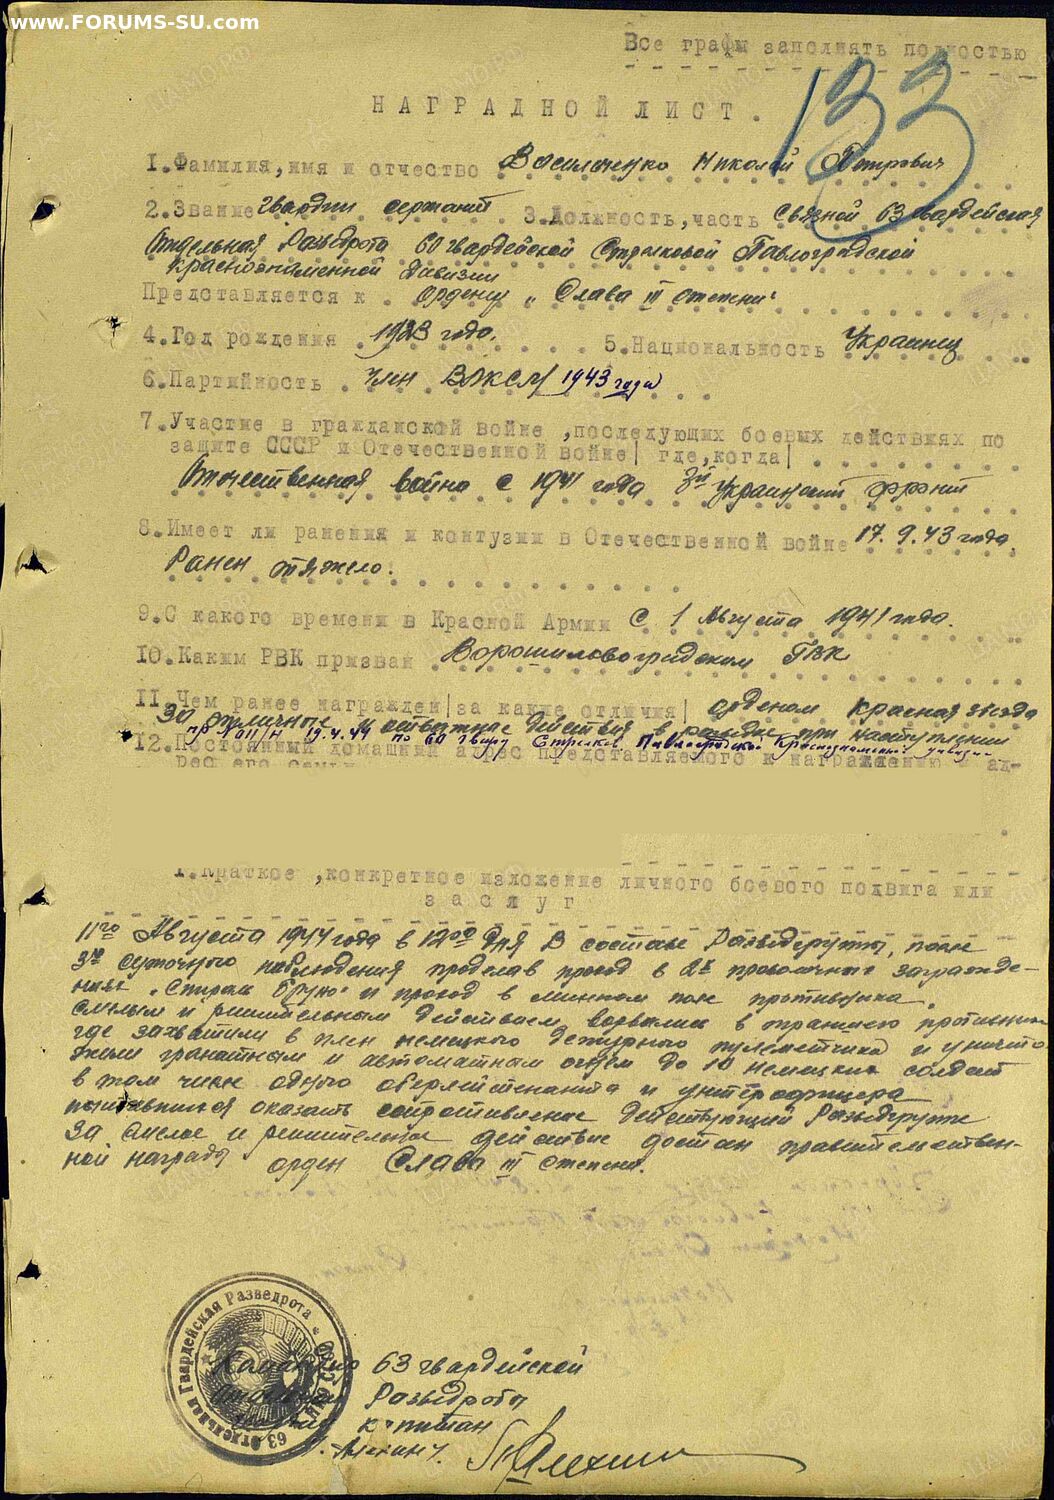 www.FORUMS-SU.com
Все графы заполнять полностью
133
НАГРАДНОЙ ЛИСТ.
1. Фамилия, имя и отчество Василенко Николай Петрович
2. Звание гвардии сержант 3. Должность, часть связной 63 гвардейская
Отдельная Разведрота 60 гвардейской Стрелковой Павлоградской
краснознаменной дивизии
Представляется к ордену „Слава III степени"
4. Год рождения 1923 года. 5. Национальность Украинец
6. Партийность член ВЛКСМ 1943 года
7. Участие в гражданской войне, последующих боевых действиях по
защите СССР и Отечественной войне | где, когда |
Отечественная война с 1941 года 3й Украинский фронт
8. Имеет ли ранения и контузии в Отечественной войне 17.9.43 года
Ранен тяжело.
9. С какого времени в Красной Армии с 1 Августа 1941 года.
10. Каким РВК призван Ворошиловоградским ГВК
11. Чем ранее награжден | за какие отличия | орденом красная звезда
За отличные и отважные действия в разведке при наступлении
пр № 011/н 19.4.44 по 60 гвард Стрелков. Павлоградской Краснознаменной дивизии
12. Постоянный домашний адрес представляемого к награждению и ад-
рес его семьи
1. Краткое, конкретное изложение личного боевого подвига или
заслуг
11го Августа 1944 года в 12 00 дня В составе Разведгруппы, после
3х суточного наблюдения проделав проход в 2х проволочных загражде-
ниях „Спираль Бруно" и проход в минном поле противника.
смелым и решительным действием ворвались в траншею противника
где захватили в плен немецкого дежурного пулеметчика и уничто
жили гранатным и автоматным огнём до 10 немецких солдат
в том числе одного оберлейтенанта и унтерофицера
пытавшихся оказать сопротивление действующей Разведгруппе
За смелое и решительное действие достоин правительствен-
ной награды орден Слава III степени.
63 Отдельная Гвардейская Разведрота
Командир 63 гвардейской
Отдельной Разведроты
гвардии капитан